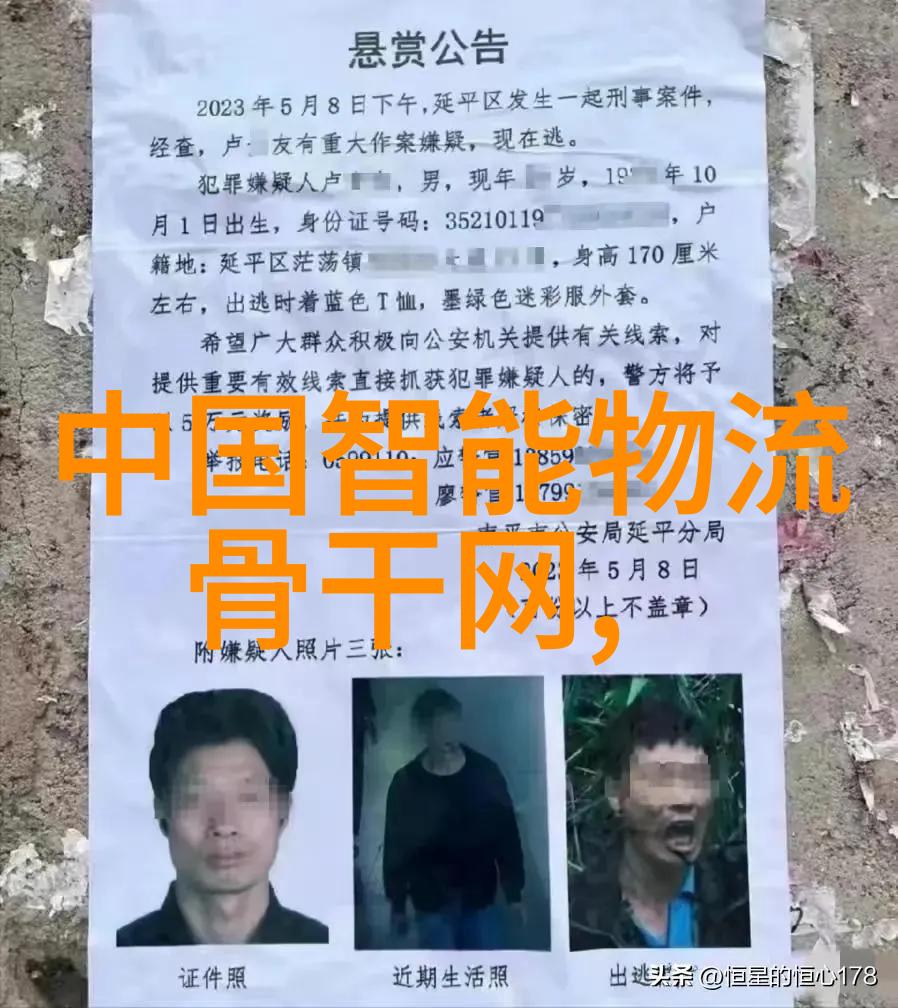 悬赏公告
2023年5月8日下午，延平区发生一起刑事案件，
经查，卢 友有重大作案嫌疑，现在逃。
犯罪嫌疑人卢 ，男，现年 岁，19 年10
月1日出生，身份证号码：35210119 ，户
籍地：延平区茫荡镇 ，身高170厘米
左右，出逃时着蓝色T恤，墨绿色迷彩服外套。
希望广大群众积极向公安机关提供有关线索，对
提供重要有效线索直接抓获犯罪嫌疑人的，警方将予
5万 保密
中国智能物流
骨干网,
举报电话 应 13859
廖 799
公安局延平分局
年5月8日
以上不盖章）
附嫌疑人照片三张：
证件照
近期生活照
出逃
头条 @恒星的恒心178